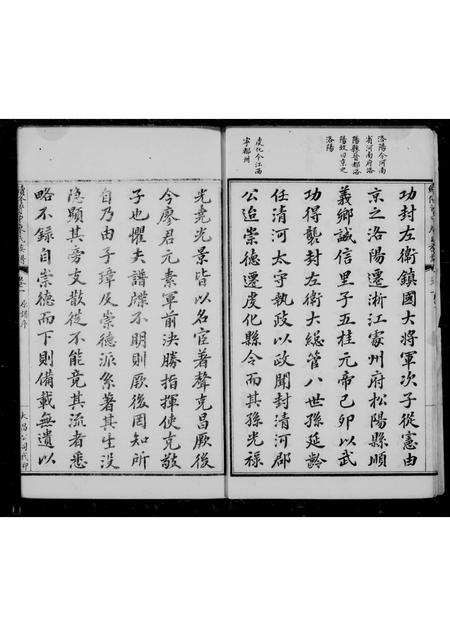 洛陽今河南
省河南府洛
陽縣晉都洛
陽故曰京之
洛陽
虔化今江西
寧都州
功封左衛鎮國大將軍次子從憲由
京之洛陽遷浙江處州府松陽縣順
義鄉誠信里子五桂元帝己卯以武
功得襲封左衛大總管八世孫延齡
任清河太守執政以政聞封清河郡
公迨崇德遷虔化縣令而其孫光祿
光堯光景皆以名宦著聲克昌厥後
今廖君元素軍前決勝指揮使克敬
子也懼夫譜牒不明則厥後罔知所
自乃由子璋及崇德派系著其生沒
隱顯其旁支散徙不能竟其流者悉
略不錄自崇德而下則備載無遺以
卷一
原譜序
大昌公司代印